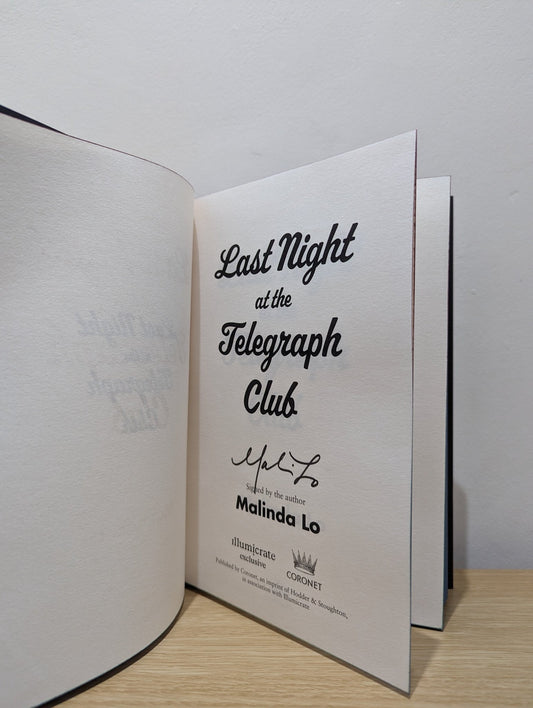 Last Night
at the
Telegraph
Club
Mali Lo
Signed by the author
Malinda Lo
illumicrate
exclusive
CORONET
Published by Coronet, an imprint of Hodder & Stoughton,
in association with Illumicrate